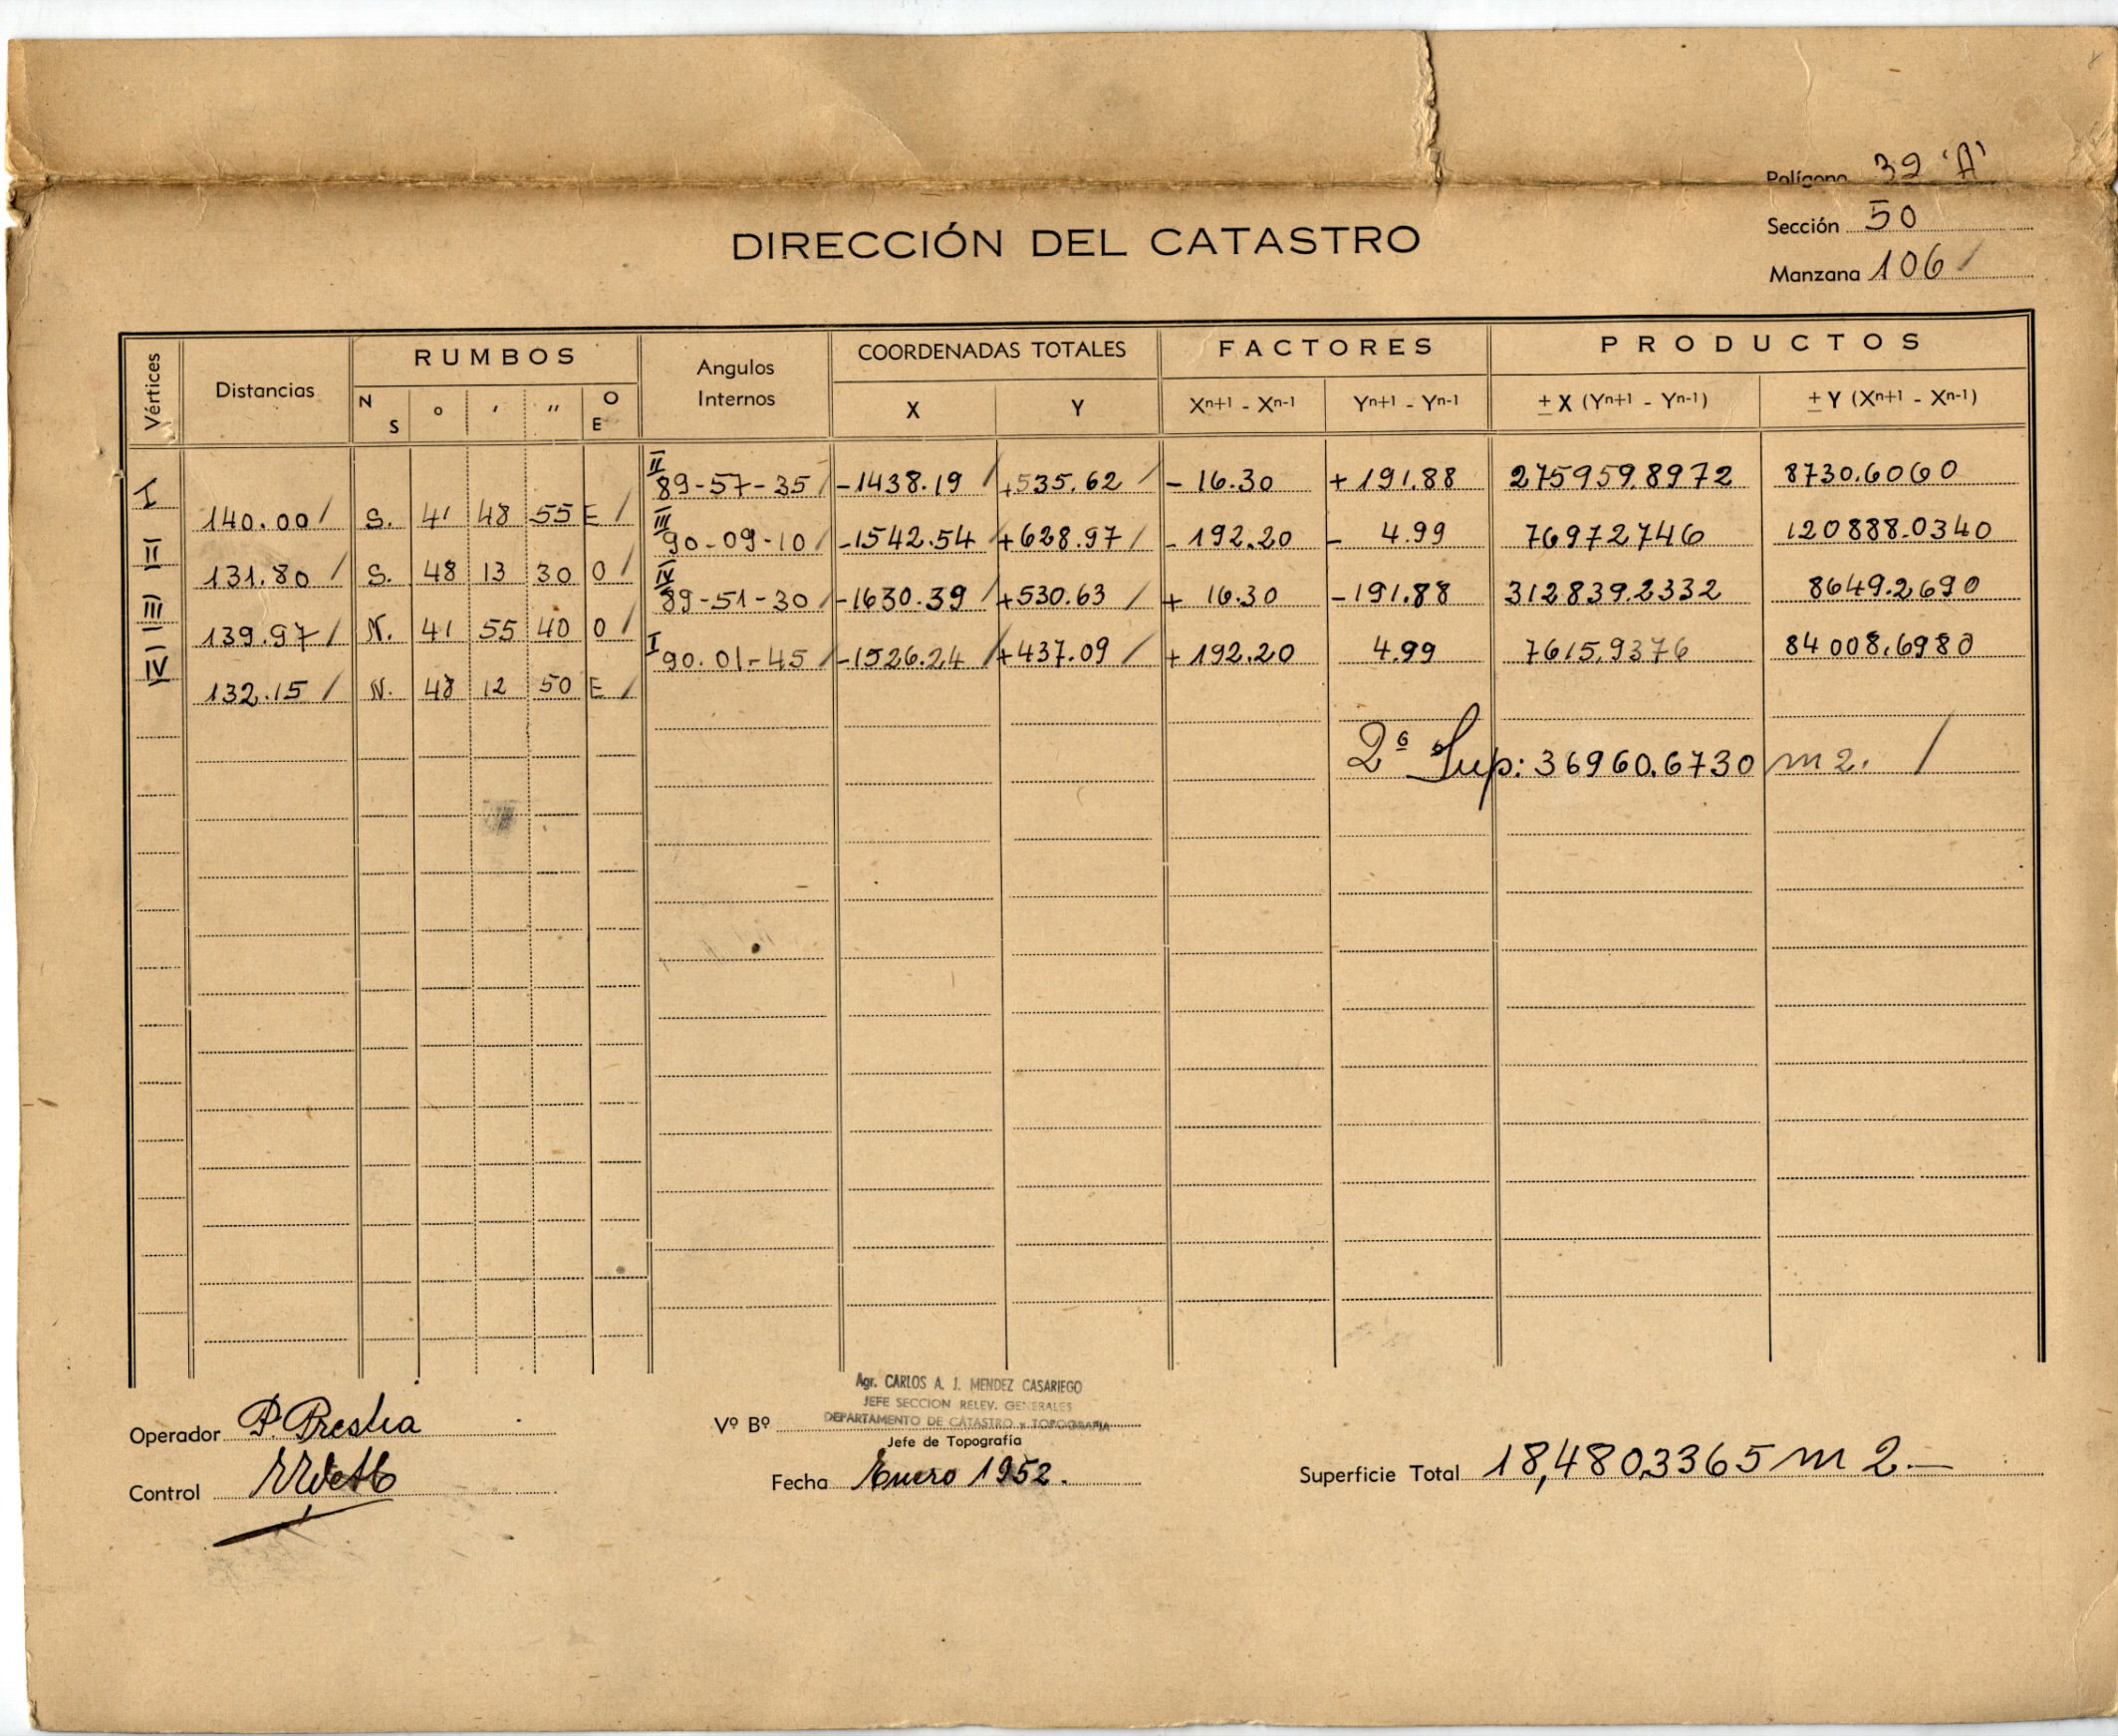 Polígono 39 'A'
Sección 50
Manzana 106
DIRECCIÓN DEL CATASTRO
Vértices Distancias RUMBOS Angulos Internos COORDENADAS TOTALES FACTORES PRODUCTOS
N S ° ' " O E X Y Xn+1 - Xn-1 Yn+1 - Yn-1 ± X (Yn+1 - Yn-1) ± Y (Xn+1 - Xn-1)
II 89-57-35 / -1438.19 / +535.62 / - 16.30 + 191.88 275959.8972 8730.6060
I 140.00 / S. 41 48 55 E /
III 90-09-10 / -1542.54 / +628.97 / - 192.20 - 4.99 7697.2746 120888.0340
II 131.80 / S. 48 13 30 O /
IV 89-51-30 / -1630.39 / +530.63 / + 16.30 -191.88 312839.2332 8649.2690
III 139.97 / N. 41 55 40 O /
I 90.01-45 / -1526.24 / +437.09 / + 192.20 4.99 7615.9376 84008.6980
IV 132.15 / N. 48 12 50 E /
2ª Sup: 36960.6730 m2. /
Agr. CARLOS A. J. MENDEZ CASARIEGO
JEFE SECCION RELEV. GENERALES
Operador P. Prestia Vº Bº DEPARTAMENTO DE CATASTRO y TOPOGRAFIA
Jefe de Topografía
Control Fecha Enero 1952. Superficie Total 18,480.3365 m2.—